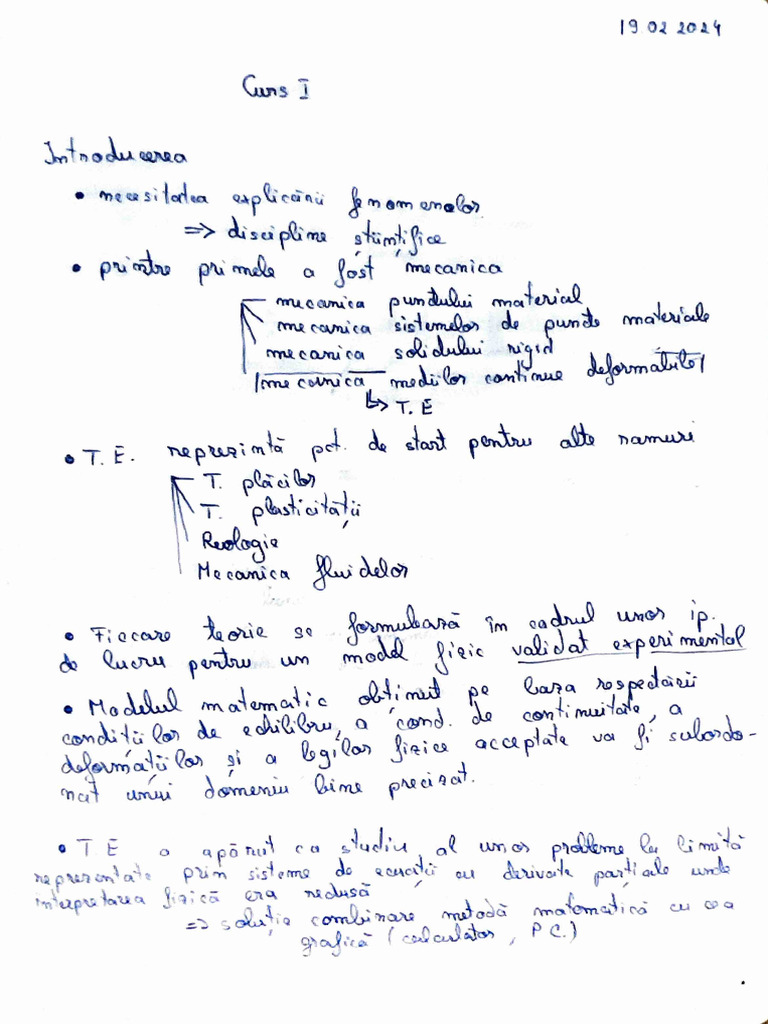 19.02.2024
Curs I
Introducerea
• necesitatea explicării fenomenelor
=> discipline științifice
• printre primele a fost mecanica
mecanica punctului material
mecanica sistemelor de puncte materiale
mecanica solidului rigid
mecanica mediilor continue deformabile
↳ T. E
• T. E. reprezintă pct. de start pentru alte ramuri
T. plăcilor
T. plasticității
Reologie
Mecanica fluidelor
• Fiecare teorie se formulează în cadrul unor ip.
de lucru pentru un model fizic validat experimental
• Modelul matematic obținut pe baza respectării
condițiilor de echilibru, a cond. de continuitate, a
deformațiilor și a legilor fizice acceptate va fi subordo-
nat unui domeniu bine precizat.
• T E a apărut ca studiu al unor probleme la limită
reprezentate prin sisteme de ecuații cu derivate parțiale unde
interpretarea fizică era redusă
=> soluție combinare metodă matematică cu cea
grafică (calculator, PC.)